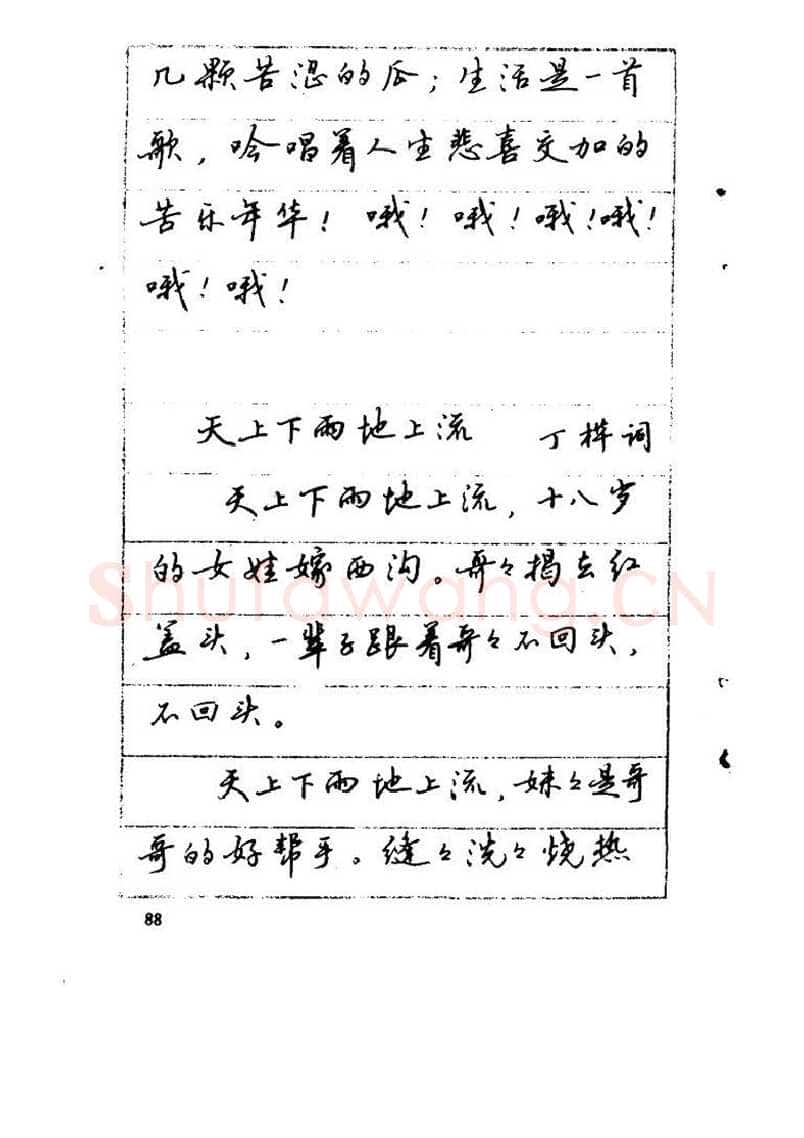 几颗苦涩的瓜；生活是一首
歌，吟唱着人生悲喜交加的
苦乐年华！哦！哦！哦！哦！
哦！哦！
天上下雨地上流 丁样词
天上下雨地上流，十八岁
的女娃嫁西沟。哥々揭去红
盖头，一辈子跟着哥々不回头，
不回头。
天上下雨地上流，妹々是哥
哥的好帮手。缝々洗々烧热
88
Shufawang.CN